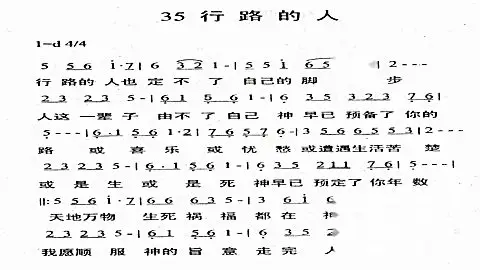 35 行路的人
1=d 4/4
5 5 6 i·7 | 6 3 2 1 - | 5 5 i 6 5 | 2 - - -
行路的人也定不了 自己的脚 步
2 3 2 3 5 - | 6 1 5 6 1 - | 6 3 5 3 2 3 7 6 |
人这一辈子 由不了自己 神早已预备了你的
5 - - - | 6·1 5 6 1·2 | 7 6 5 7 6 - | 3 5 6 6 5 5 3 | 2 - - -
路 或喜乐 或忧愁或遭遇生活苦楚
2 3 2 3 5 - | 6·1 5 6 1 - | 6 3 5 2 1 1 7 6 | 5 - - - |
或是生或是死 神早已预定了你年数
‖: 5 5 6 i·7 | 6 6 6 3 5 - | 3 6 i 6
天地万物 生死祸福都在神
2 3 2 3 5 - | 6 1 5 6 1 - | 6 3 5 2
我愿顺服神的旨意走完人